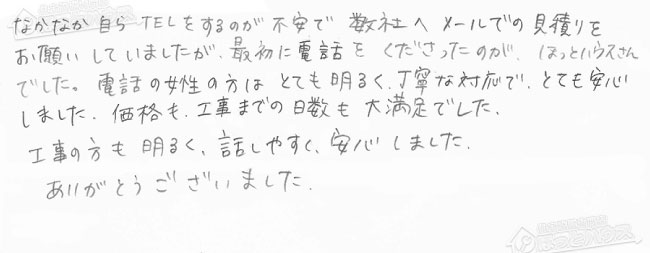 なかなか自らTELをするのが不安で数社へメールでの見積りを
お願いしていましたが、最初に電話をくださったのが、ほっとハウスさん
でした。電話の女性の方はとても明るく、丁寧な対応で、とても安心
しました。価格も、工事までの日数も大満足でした。
工事の方も明るく、話しやすく、安心しました。
ありがとうございました。